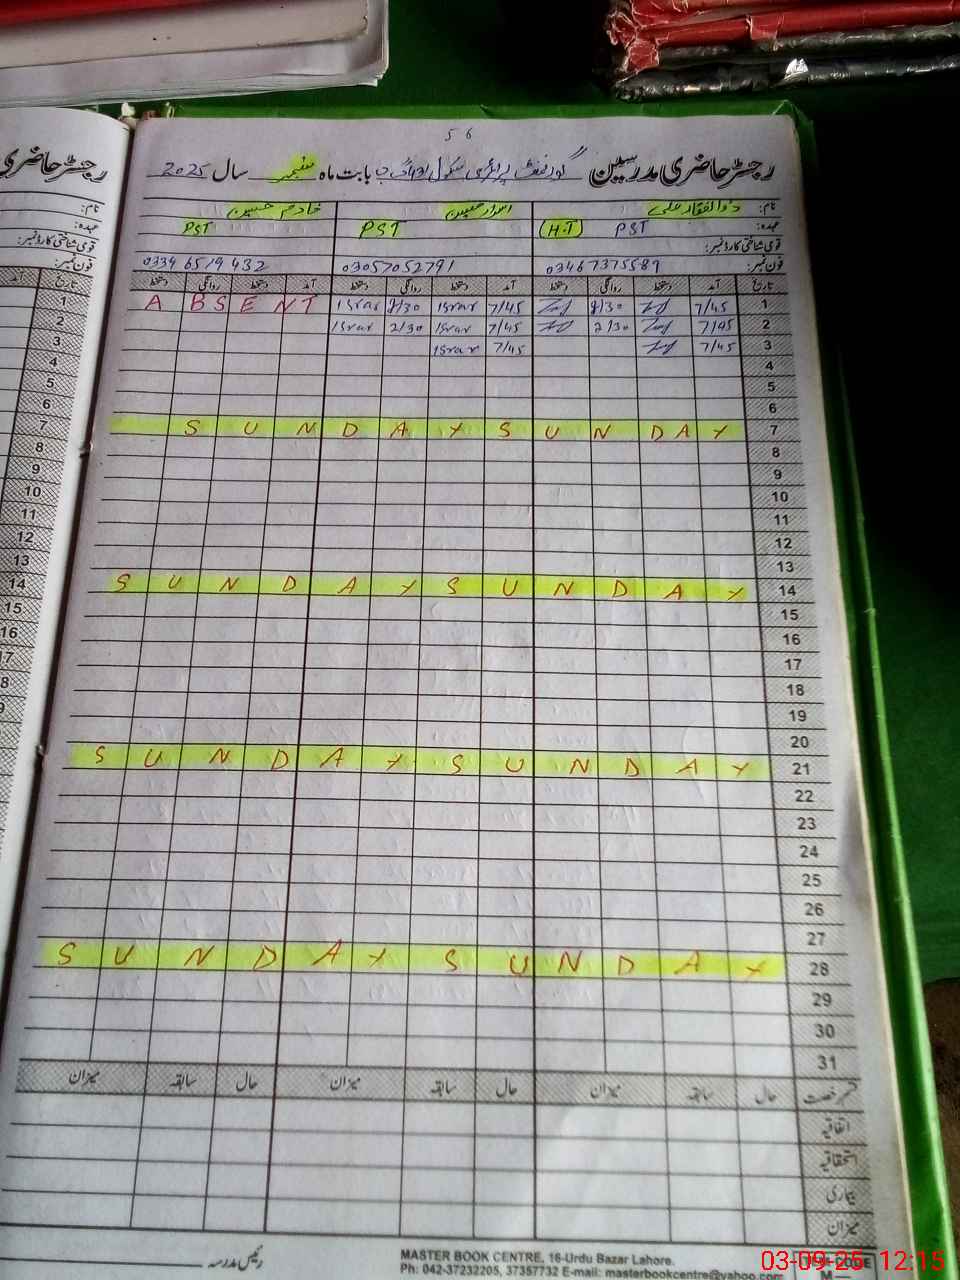 56
رجسٹر حاضری مدرسین گورنمنٹ پرائمری سکول بابت ماہ ستمبر سال 2025
رجسٹر حاضری
نام: ذوالفقار علی اسرار حسین خادم حسین
عہدہ: PST (H.T) PST PST
قومی شناختی کارڈ نمبر:
فون نمبر: 03467375589 03057052791 0334 6519432
تاریخ آمد دستخط روانگی دستخط آمد دستخط روانگی دستخط آمد دستخط روانگی دستخط
1 7/45 8/30 7/45 Israr 8/30 Israr A B S E N T
2 7/45 2/30 7/45 Israr 2/30 Israr
3 7/45 7/45 Israr
4
5
6
7 S U N D A Y S U N D A Y
8
9
10
11
12
13
14 S U N D A Y S U N D A Y
15
16
17
18
19
20
21 S U N D A Y S U N D A Y
22
23
24
25
26
27
28 S U N D A Y S U N D A Y
29
30
31
قسم رخصت حال سابقہ میزان حال سابقہ میزان حال سابقہ میزان
اتفاقیہ
استحقاقیہ
بیماری
میزان
رئیس مدرسہ
MASTER BOOK CENTRE, 16-Urdu Bazar Lahore.
Ph: 042-37232205, 37357732 E-mail: masterbookcentre@yahoo.com
03-09-25 12:15